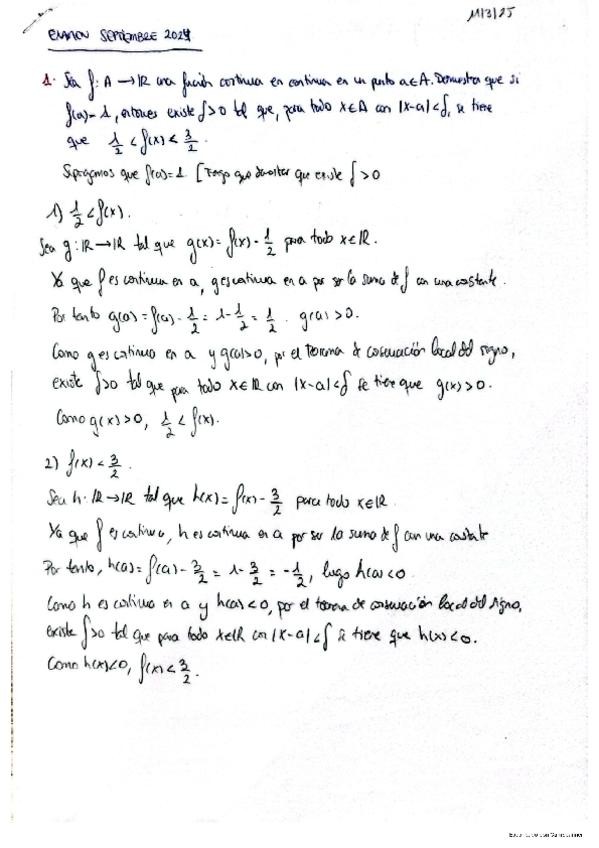 11/3/25
EXAMEN SEPTIEMBRE 2024
1. Sea f: A → IR una función continua en continua en un punto a∈A. Demuestra que si
f(a)=1, entonces existe δ>0 tal que, para todo x∈A con |x-a|<δ, se tiene
que 1/2 < f(x) < 3/2.
Supongamos que f(a)=1 [Tengo que demostrar que existe δ>0
1) 1/2 < f(x).
Sea g: IR → IR tal que g(x) = f(x) - 1/2 para todo x∈IR.
Ya que f es continua en a, g es continua en a por ser la suma de f con una constante.
Por tanto g(a) = f(a) - 1/2 = 1 - 1/2 = 1/2. g(a) > 0.
Como g es continua en a y g(a)>0, por el Teorema de conservación local del signo,
existe δ>0 tal que para todo x∈IR con |x-a|<δ se tiene que g(x)>0.
Como g(x)>0, 1/2 < f(x).
2) f(x) < 3/2.
Sea h: IR → IR tal que h(x) = f(x) - 3/2 para todo x∈IR.
Ya que f es continua, h es continua en a por ser la suma de f con una constante
Por tanto, h(a) = f(a) - 3/2 = 1 - 3/2 = -1/2, luego h(a)<0.
Como h es continua en a y h(a)<0, por el teorema de conservación local del signo,
existe δ>0 tal que para todo x∈IR con |x-a|<δ se tiene que h(x)<0.
Como h(x)<0, f(x) < 3/2.